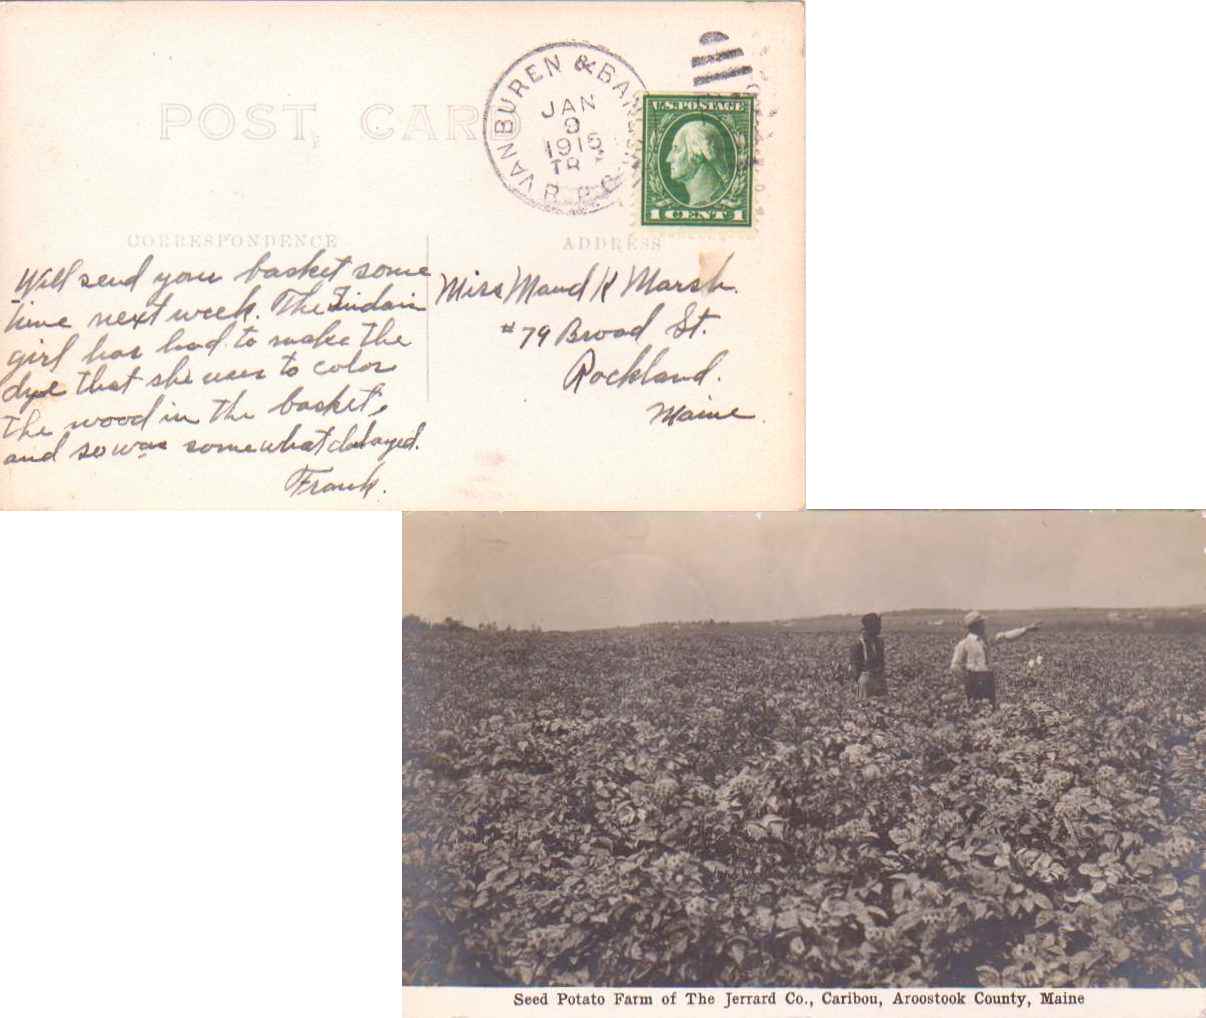 POST CARD
VAN BUREN & BAN
JAN
9
1915
TR
R.P.O.
U.S. POSTAGE
1 CENT 1
CORRESPONDENCE
ADDRESS
Will send your basket some
time next week. The Indain
girl has had to make the
dye that she uses to color
the wood in the basket,
and so was somewhat delayed.
Frank.
Miss Maud K Marsh.
#79 Broad St.
Rockland.
Maine.
Seed Potato Farm of The Jerrard Co., Caribou, Aroostook County, Maine